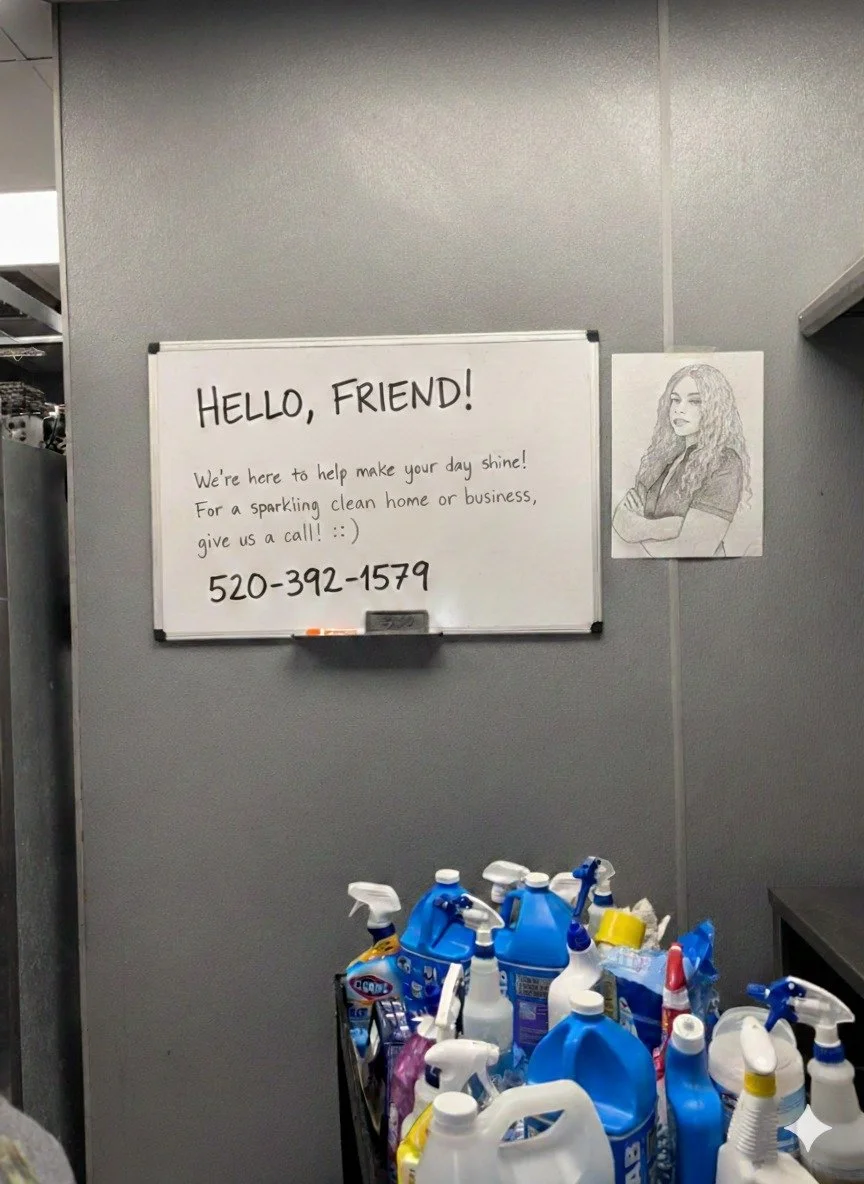 HELLO, FRIEND!
We're here to help make your day shine!
For a sparkling clean home or business,
give us a call! ::)
520-392-1579